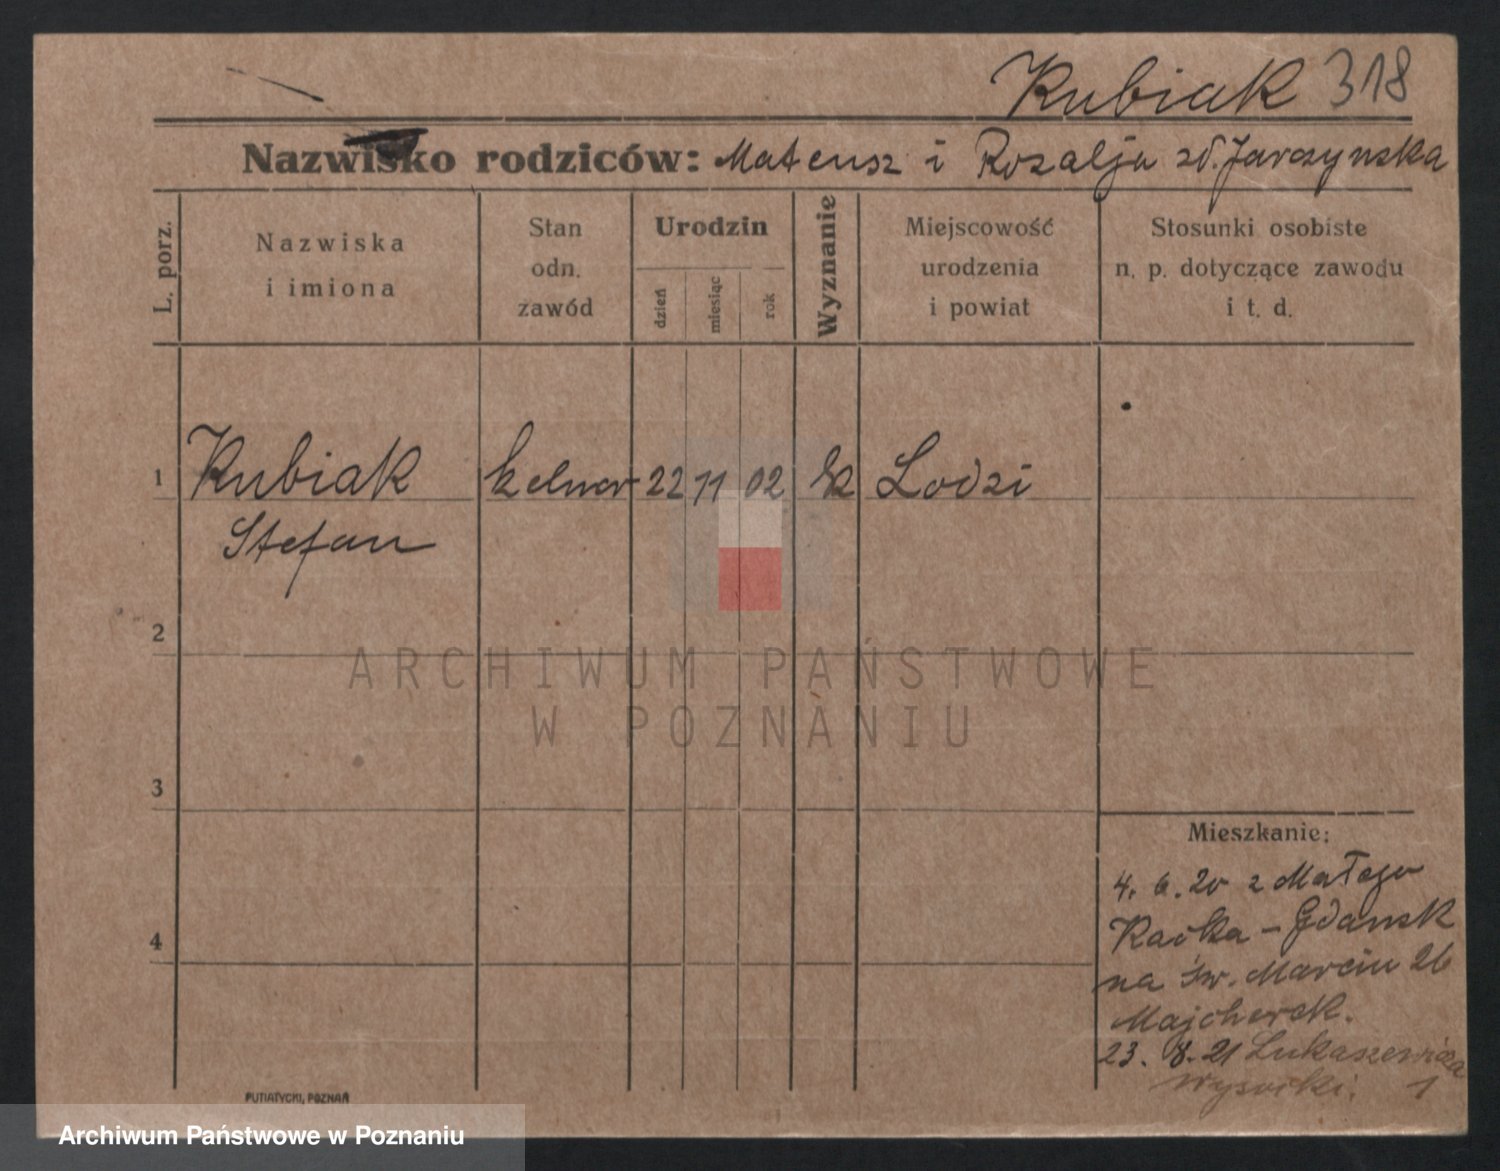 Kubiak 318
Nazwisko rodziców: Mateusz i Rozalja zd. Jarczynska
L. porz.
Nazwiska
i imiona
Stan
odn.
zawód
Urodzin
dzień
miesiąc
rok
Wyznanie
Miejscowość
urodzenia
i powiat
Stosunki osobiste
n. p. dotyczące zawodu
i t. d.
1 Kubiak kelner 22 11 02 Lodzi
Stefan
2
ARCHIWUM PAŃSTWOWE
W POZNANIU
3
Mieszkanie:
4. 6. 20 z Małego
Kacka - Gdansk
4
na św. Marcin 26
Majcherek.
23. 8. 21 Lukaszewicza
Wysocki. 1
PUTIATYCKI, POZNAŃ
Archiwum Państwowe w Poznaniu